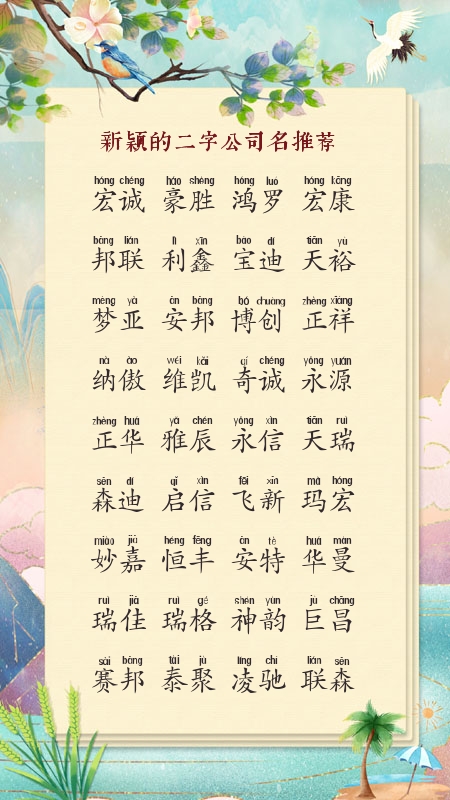 新颖的二字公司名推荐
hóng chéng háo shèng hóng luó hóng kāng
宏诚 豪胜 鸿罗 宏康
bāng lián lì xīn bǎo dí tiān yù
邦联 利鑫 宝迪 天裕
mèng yà ān bāng bó chuàng zhèng xiáng
梦亚 安邦 博创 正祥
nà ào wéi kǎi qí chéng yǒng yuán
纳傲 维凯 奇诚 永源
zhèng huá yǎ chén yǒng xìn tiān ruì
正华 雅辰 永信 天瑞
sēn dí qǐ xìn fēi xīn mǎ hóng
森迪 启信 飞新 玛宏
miào jiā héng fēng ān tè huá màn
妙嘉 恒丰 安特 华曼
ruì jiā ruì gé shén yùn jù chāng
瑞佳 瑞格 神韵 巨昌
sài bāng tài jù líng chí lián sēn
赛邦 泰聚 凌驰 联森